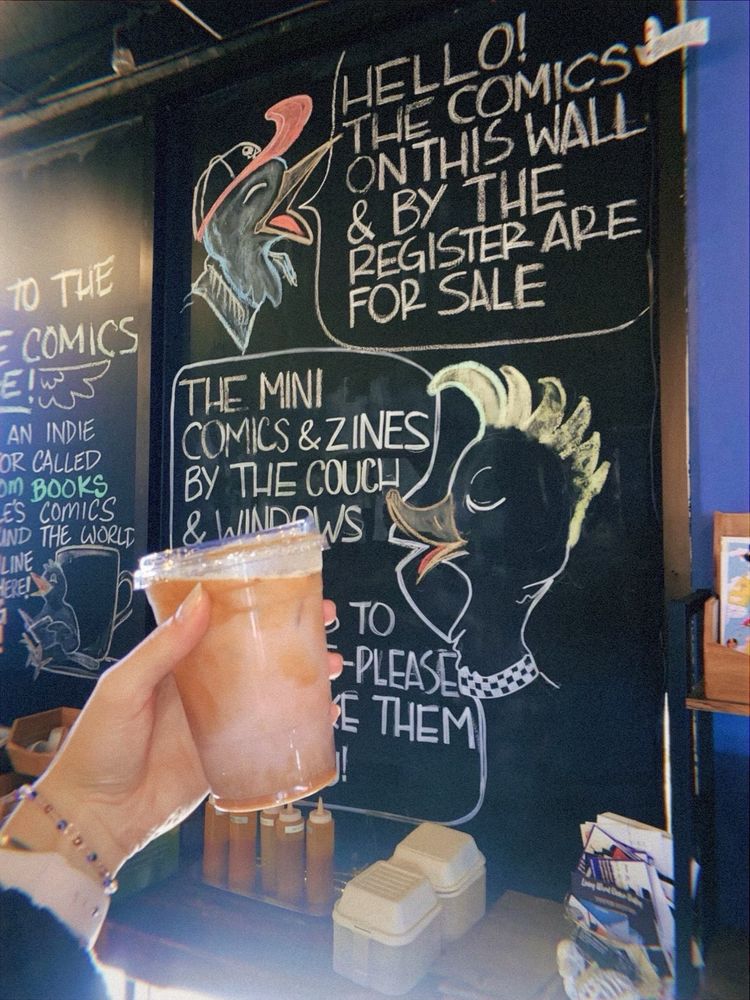 HELLO!
THE COMICS
ON THIS WALL
& BY THE
REGISTER ARE
FOR SALE
THE MINI
COMICS & ZINES
BY THE COUCH
& WINDOWS
TO
-PLEASE
THEM
TO THE
COMICS
AN INDIE
CALLED
BOOKS
COMICS
THE WORLD